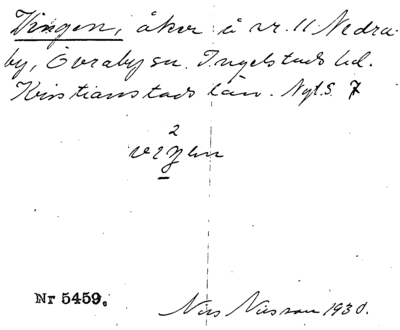 Vingen, åker å nr. 11 Nedra-
by, Övraby sn. Ingelstads hd.
Kristianstads län. Nyt.S. 7
2
Nr 5459.
Nils Nilsson 1930.